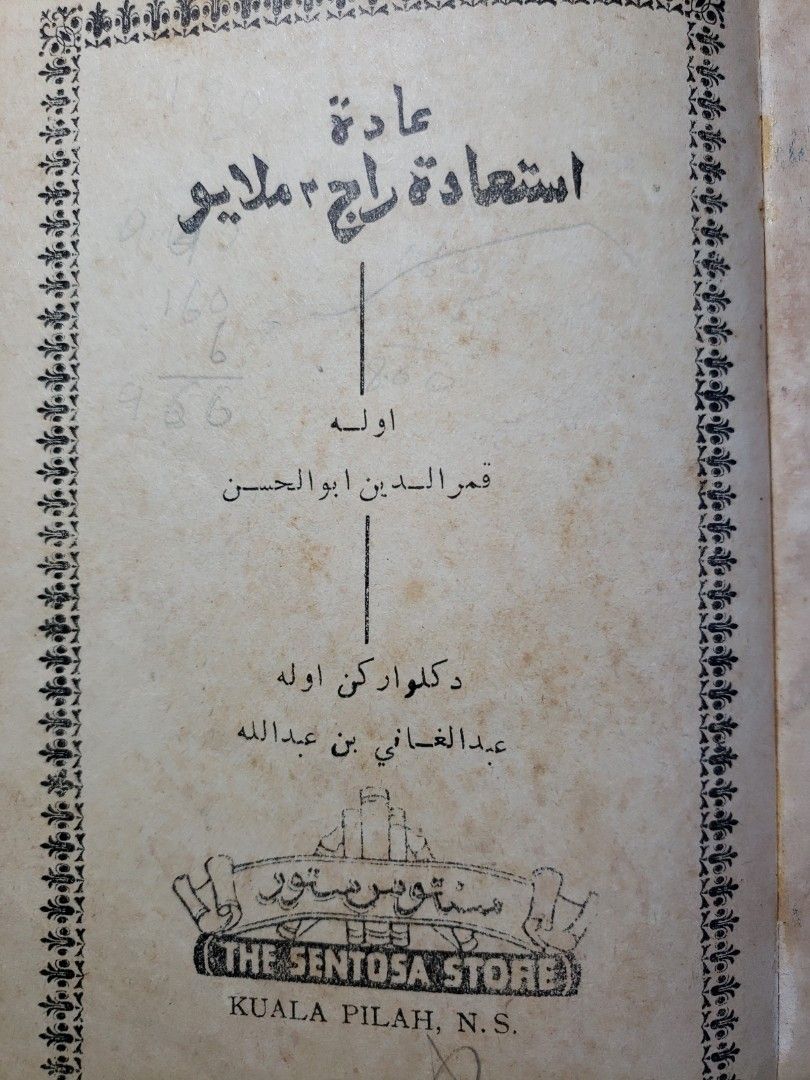 عادة
استعادة راج٢ ملايو
160
6
966
اوله
قمرالدين ابوالحسن
دكلواركن اوله
عبدالغافي بن عبدالله
سنتوس ستور
THE SENTOSA STORE
KUALA PILAH, N.S.